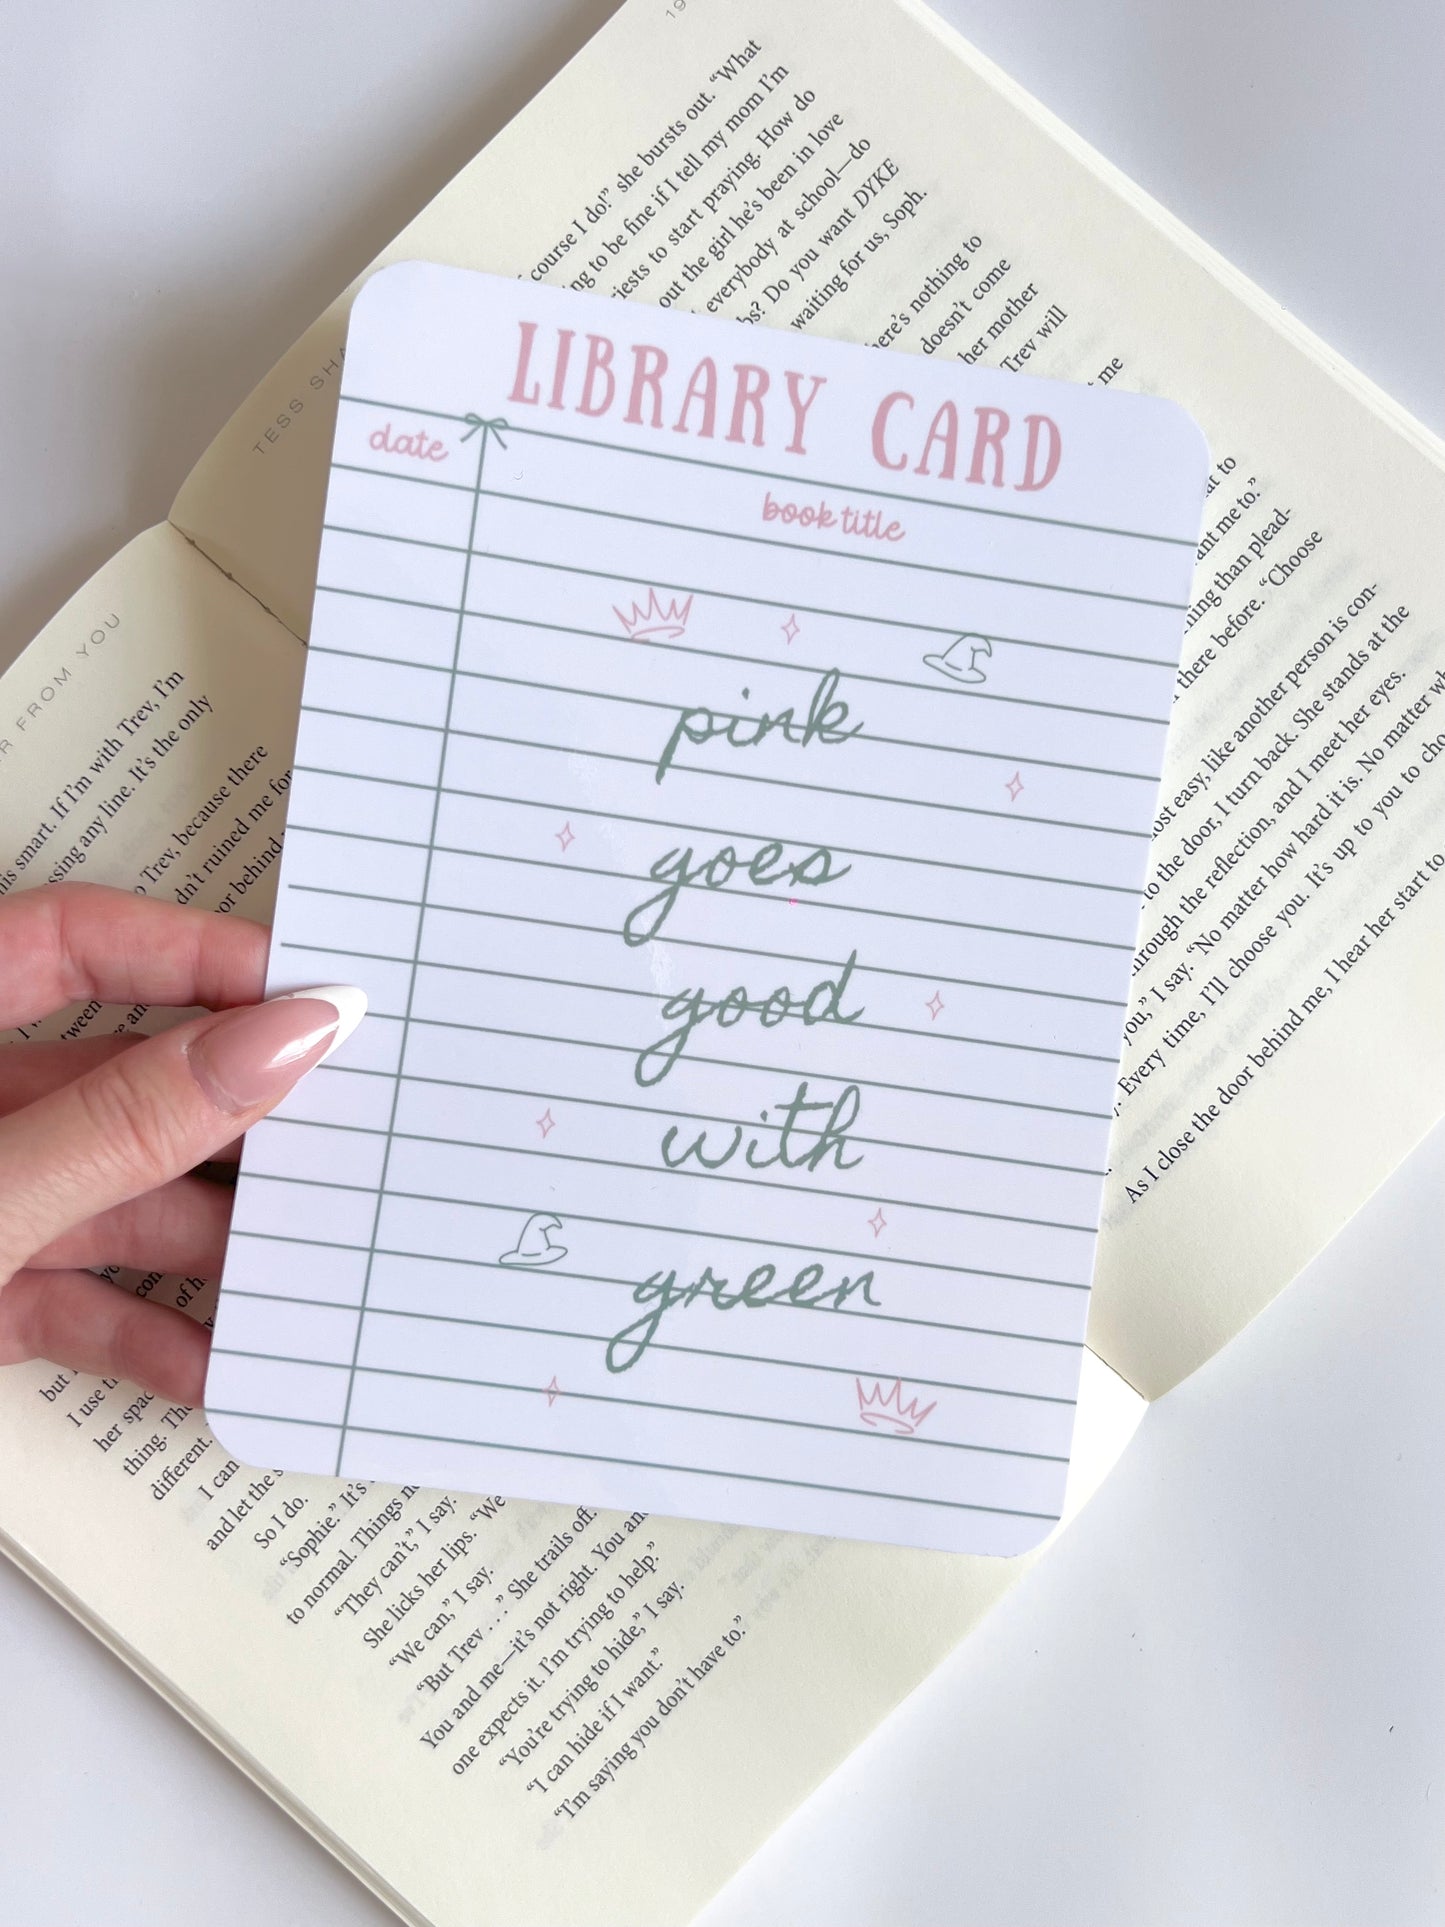 LIBRARY CARD
date
book title
pink
goes
good
with
green
19
course I do!” she bursts out. “What
ng to be fine if I tell my mom I’m
riests to start praying. How do
out the girl he’s been in love
everybody at school—do
bs? Do you want DYKE
waiting for us, Soph.
here’s nothing to
doesn’t come
her mother
Trev will
me
at to
ant me to.”
hing than plead-
there before. “Choose
ost easy, like another person is con-
to the door, I turn back. She stands at the
hrough the reflection, and I meet her eyes.
you,” I say. “No matter how hard it is. No matter wh
y. Every time, I’ll choose you. It’s up to you to cho
As I close the door behind me, I hear her start to
TESS SHA
R FROM YOU
his smart. If I’m with Trev, I’m
ssing any line. It’s the only
o Trev, because there
dn’t ruined me for
or behind
between
but I
I use th
her spac
thing. The
different.
I can
and let the s
So I do.
“Sophie.” It’s
to normal. Things n
“They can’t,” I say.
She licks her lips. “We
“We can,” I say.
“But Trev . . .” She trails off.
You and me—it’s not right. You and
one expects it. I’m trying to help.”
“You’re trying to hide,” I say.
“I can hide if I want.”
“I’m saying you don’t have to.”